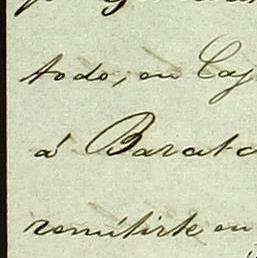 todo; en Caj
á Barato
remitirte en